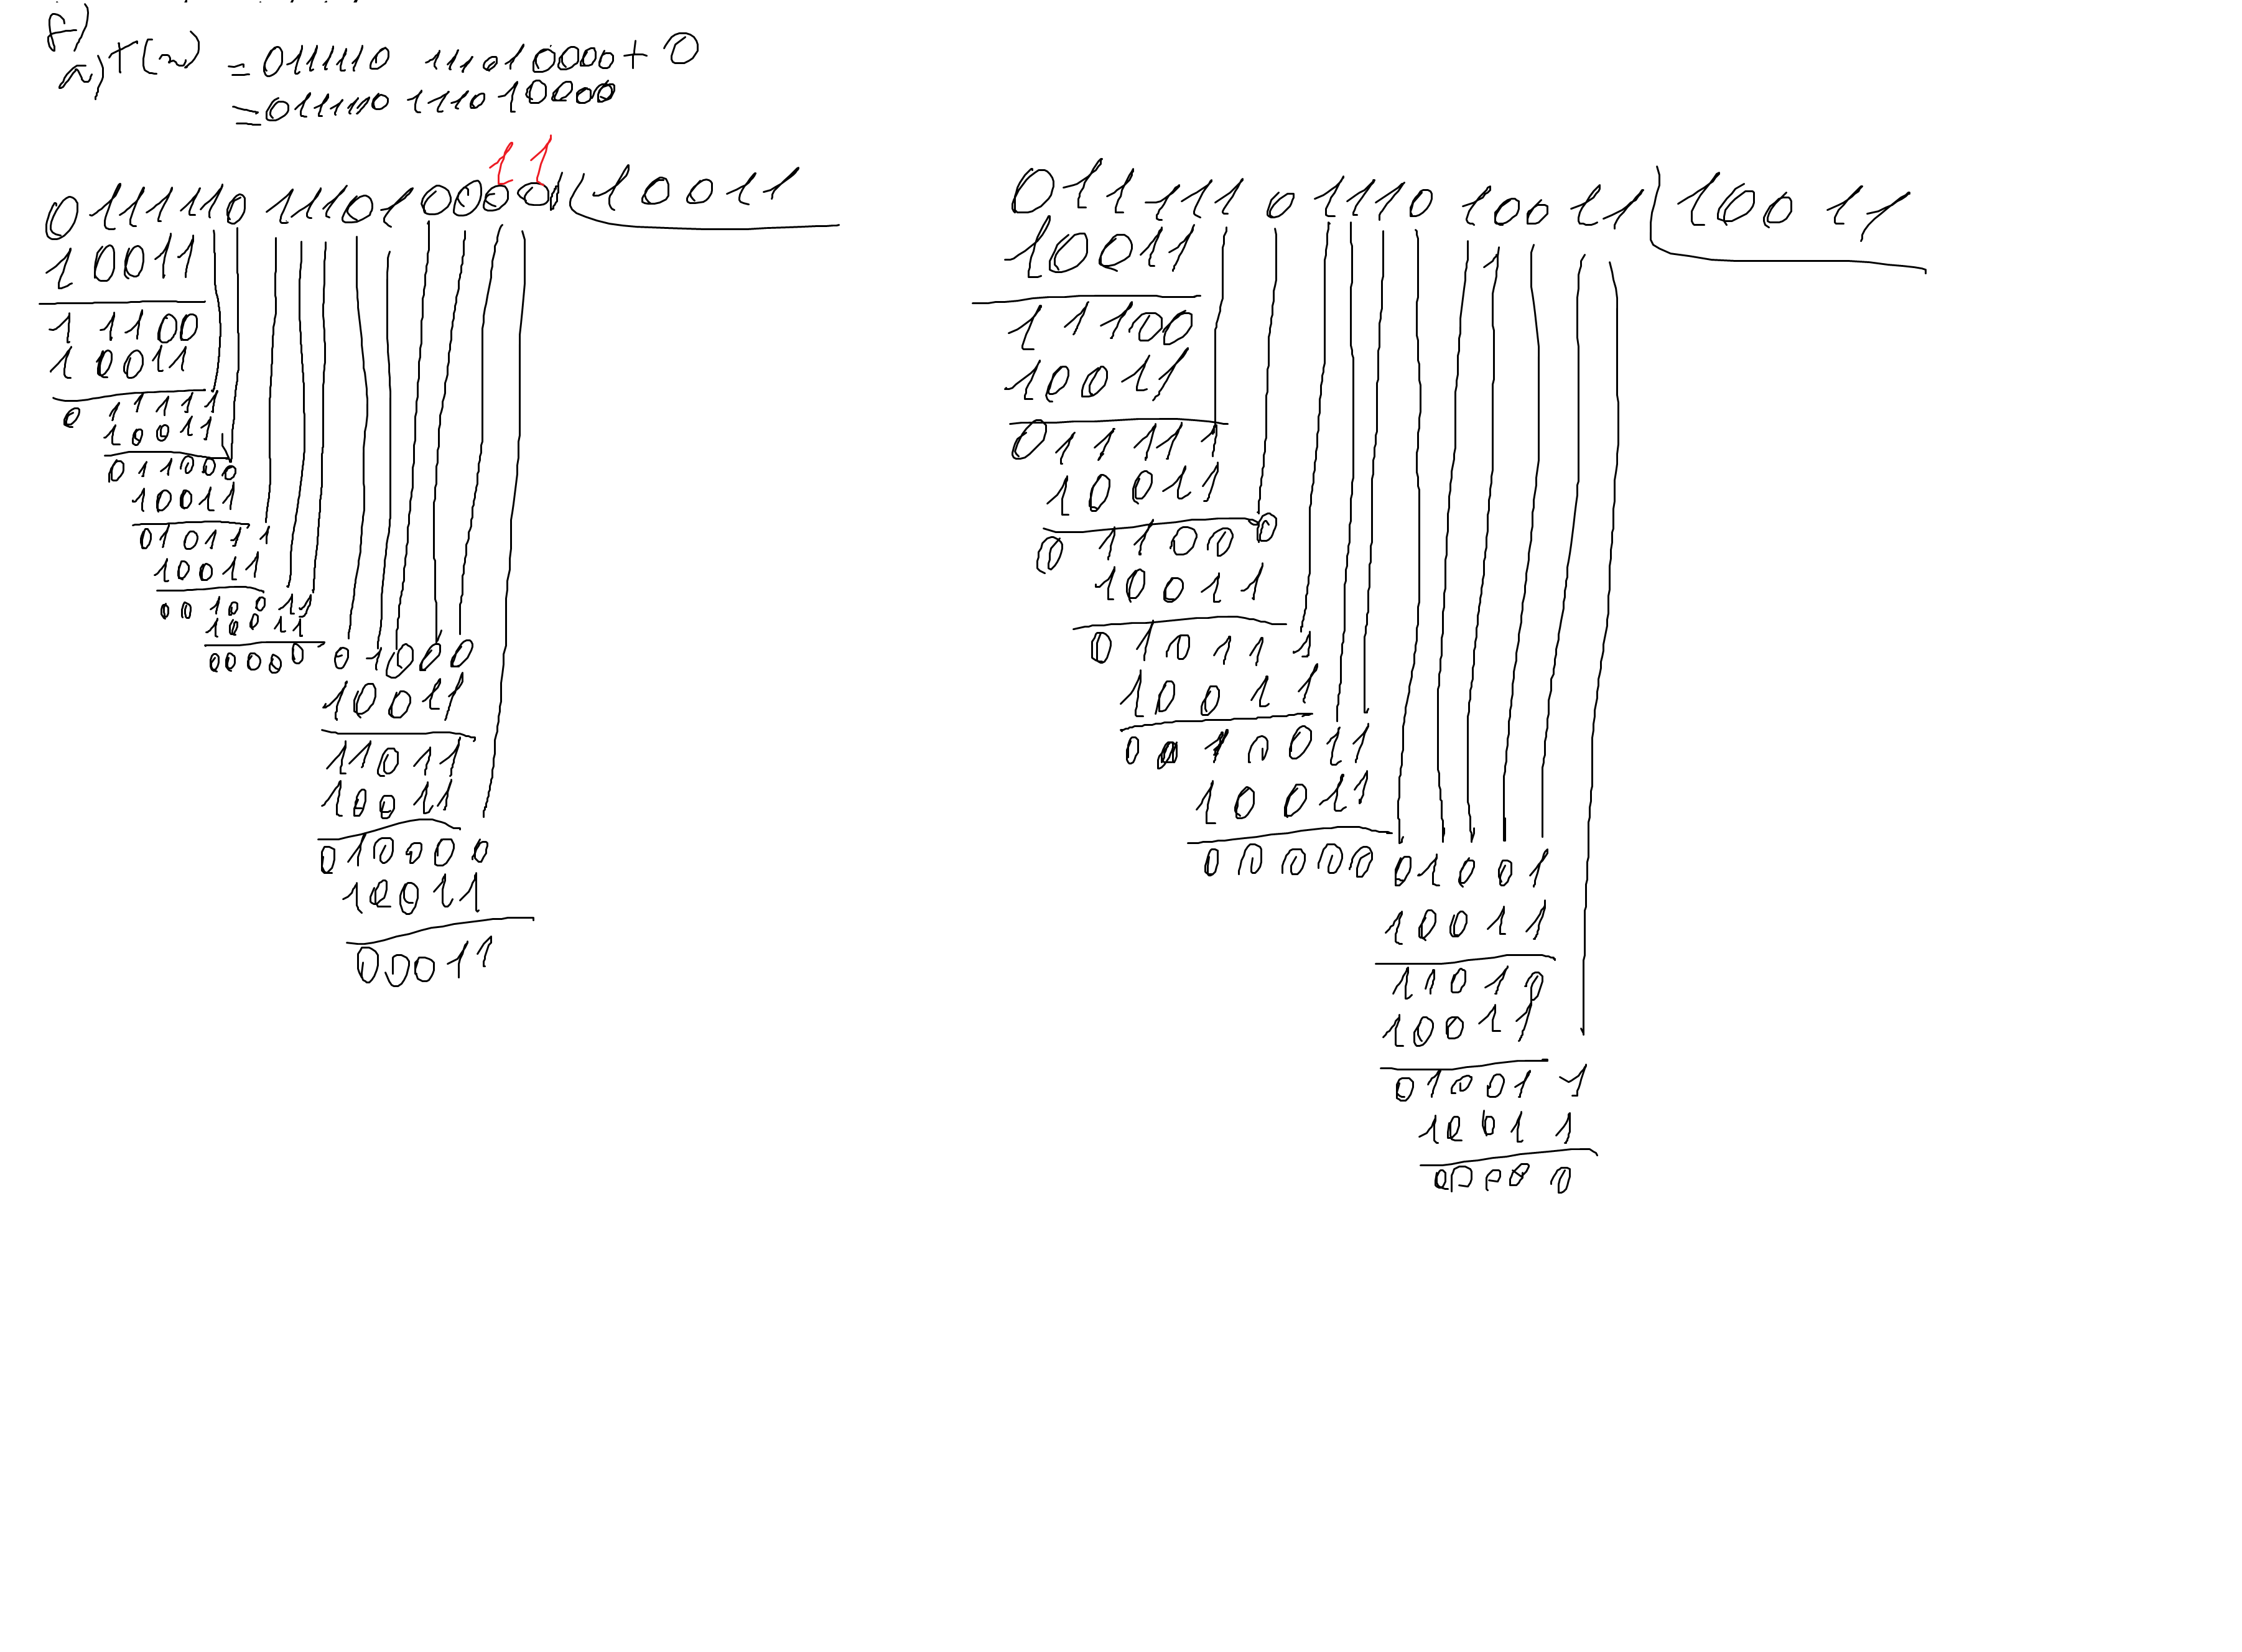 8)
a) T(x) = 011111 0 1110 1 0000 + 0
= 011111 0 1110 1 0000
11
011111 0 1110 1 0000 ( 10011
10011
11100
10011
011111
10011
011000
10011
010111
10011
0010011
10011
00000 01000
10011
11011
10011
010000
10011
00011
011111 0 1110 10011 ) 10011
10011
11100
10011
011111
10011
011000
10011
010111
10011
0010011
10011
00000 01001
10011
11010
10011
010011
10011
00000